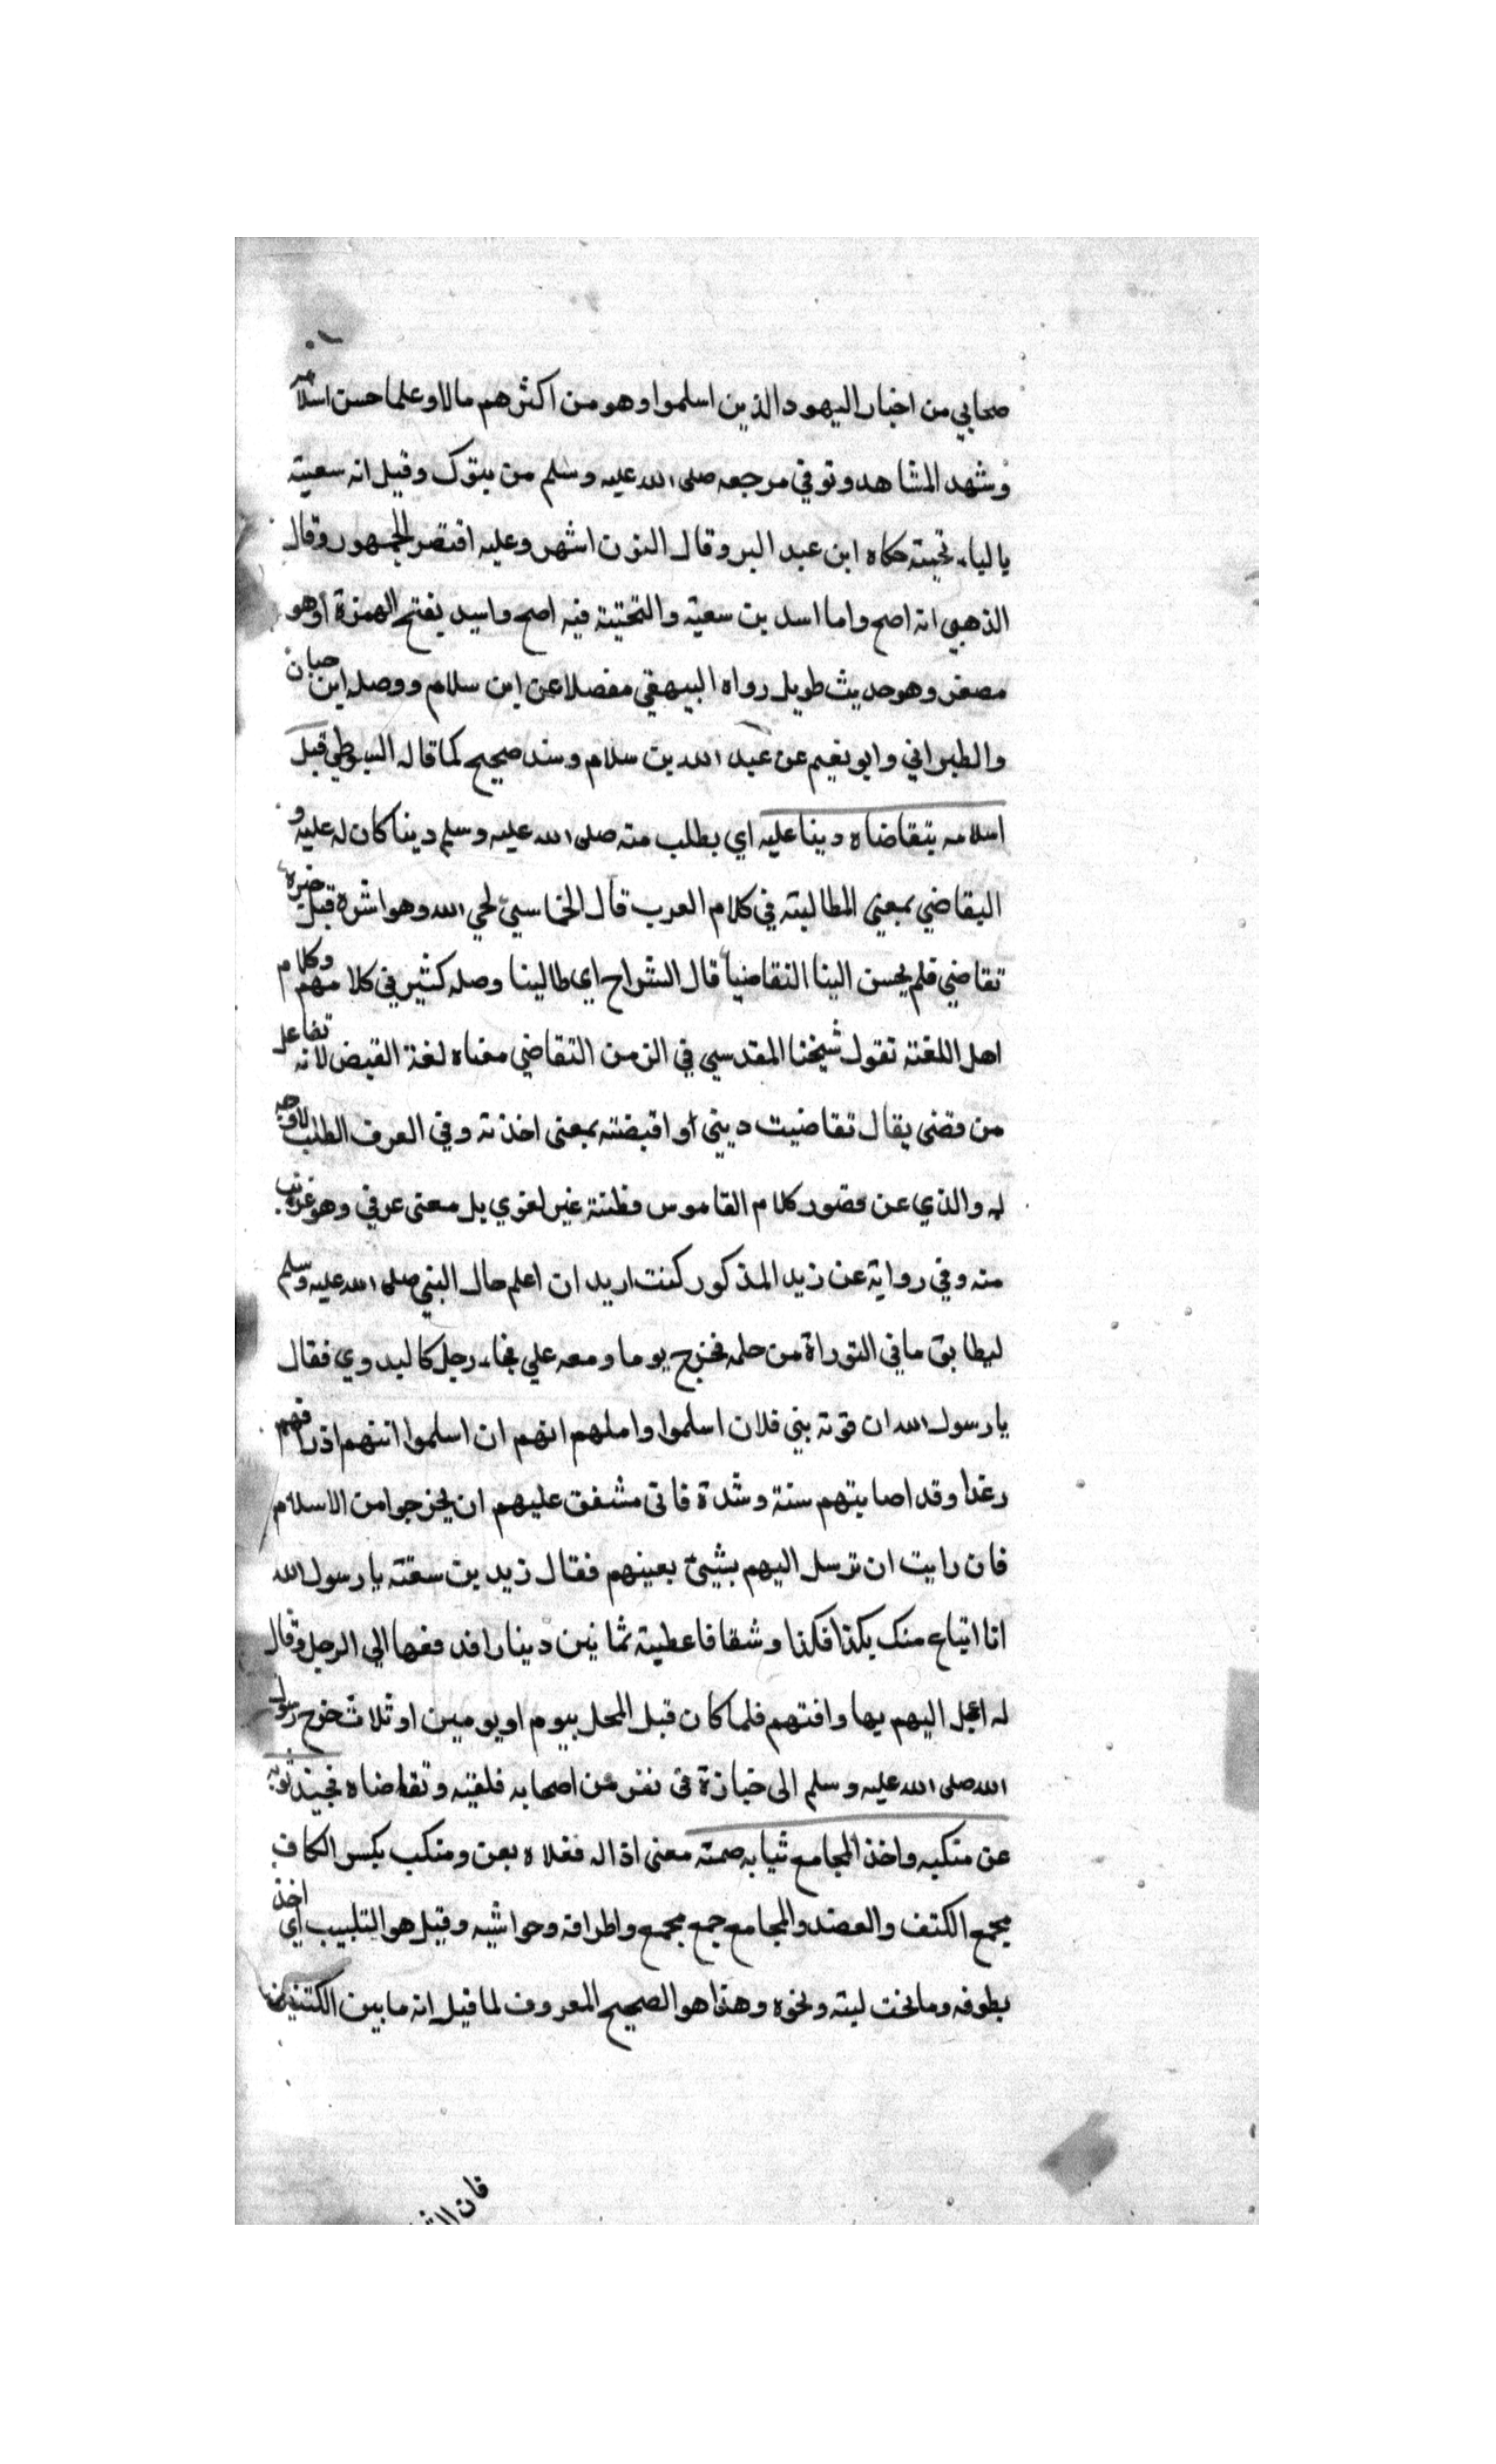 صحابي من احبار اليهود الذين اسلموا وهو من اكثرهم مالا وعلما حسن اسلامه
وشهد المشاهد وتوفي مرجعه صلى الله عليه وسلم من تبوك وقيل انه سعية
بالياء تحيتة حكاه ابن عبد البر وقال النون اشهر وعليه اقتصر الجمهور وقال
الذهبي انه اصح واما اسد بن سعية والتحتية فيه اصح واسيد بفتح الهمزة او هو
مصغر وهو حديث طويل رواه البيهقي مفصلا عن ابن سلام ووصله ابن حبان
والطبراني وابو نعيم عن عبد الله بن سلام وسند صحيح كما قاله السيوطي قبل
اسلامه يتقاضاه دينا عليه اي يطلب منه صلى الله عليه وسلم دينا كان له عليه و
التقاضي بمعني المطالبته في كلام العرب قال الحماسيي لحي الله وهو اشره قبل خبرة
تقاضي فلم يحسن الينا التقاضيا قال الشراح اي طالبنا وصله كثير في كلامهم وكلام
اهل اللغته تقول شيخنا المقدسي في الزمن التقاضي معناه لغة القبض لانه تفاعل
من قضى يقال تقاضيت ديني أو اقبضته بمعنى اخذته وفي العرف الطلب لاوجه
له والذي عن قصور كلام القاموس فظنة غير لغوي بل معنى عرفي وهو غريب
منه وفي رواية عن زيد المذكور كنت اريد ان اعلم حال النبي صلى الله عليه وسلم
ليطابق ما في التوراة من حلمه فخرج يوما ومعه علي فجاء رجل كالبدوي فقال
يا رسول الله ان قرية بني فلان اسلموا واملهم انهم ان اسلموا اتتهم ارزاقهم
رغدا وقد اصابتهم سنة وشدة فانى مشفق عليهم ان يخرجوا من الاسلام
فان رايت ان ترسل اليهم بشيئ يعينهم فقال زيد بن سعنه يا رسول الله
انا ابتاع منك بكذا فكذا وشقا فاعطيته ثمانين دينارا فدفعها الي الرجل وقال
له اعجل اليهم بها وافتهم فلما كان قبل المحل بيوم او يومين او ثلاث خرج رسول
الله صلى الله عليه وسلم الى جنازة في نفر من اصحابه فلقيته وتقاضاه فجبذ ثوبه
عن منكبه واخذ المجامع ثيابه صمته معنى ازاله فعلاه بعن ومنكب بكسر الكاف
مجمع الكتف والعضد والمجامع جمع مجمع واطرافه وحواشيه وقيل هو التلبيب اي اخذ
بطوقه وما تحت لبته ونحوه وهذا هو الصحيح المعروف لما قيل انه ما بين الكتفين
فان